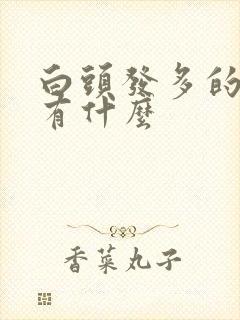 白頭發多的
有什麼
香菜丸子